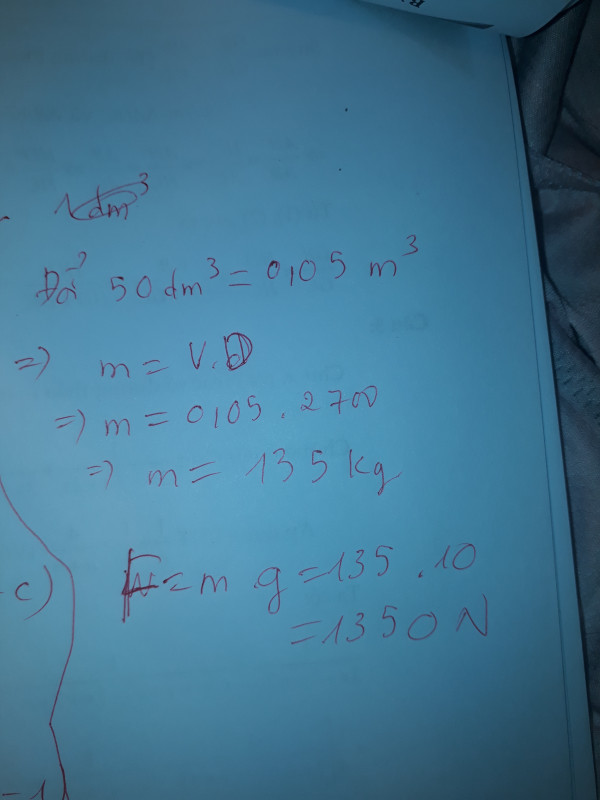 1dm³
Đổi 50 dm³ = 0,05 m³
=> m = V.D
=> m = 0,05 . 2700
=> m = 135 kg
c) F = m . g = 135 . 10
= 1350 N